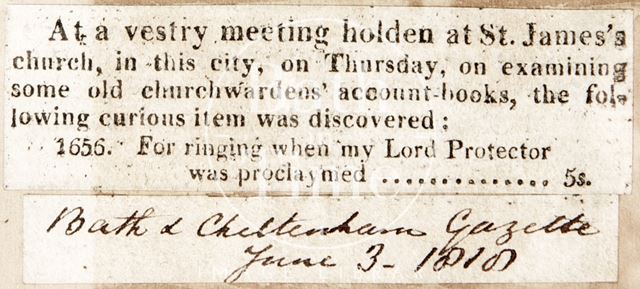 At a vestry meeting holden at St. James's
church, in this city, on Thursday, on examining
some old churchwardens' account-books, the fol-
lowing curious item was discovered:
1656. For ringing when my Lord Protector
was proclaymed ............... 5s.
Bath & Cheltenham Gazette
June 3 - 1818